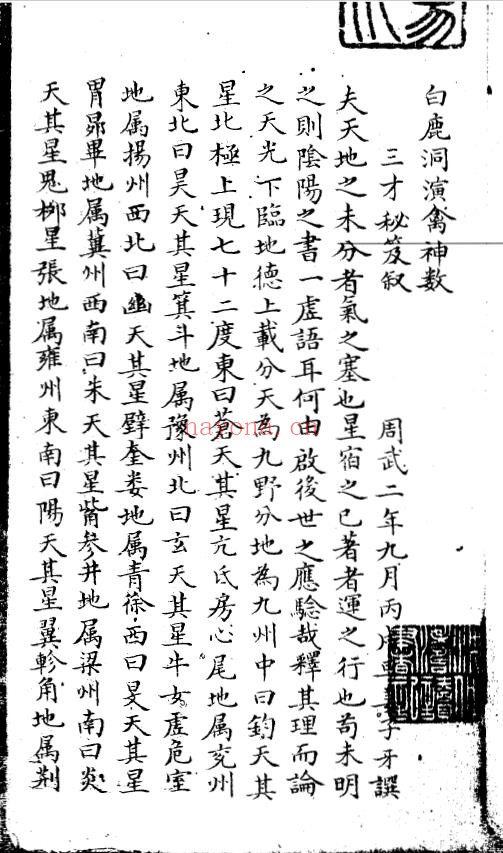 白鹿洞演禽神数
三才秘笈叙
周武二年九月丙 子牙譔
夫天地之未分者氣之塞也星宿之已著者運之行也苟未明
之則陰陽之書一虛語耳何由啟後世之應驗哉釋其理而論
之天光下臨地德上載分天為九野分地為九州中曰鈞天其
星北極上現七十二度東曰蒼天其星亢氐房心尾地属兖州
東北曰昊天其星箕斗地属豫州北曰玄天其星牛女虛危室
地属揚州西北曰幽天其星壁奎娄地属青徐西曰旻天其星
胃昴畢地属冀州西南曰朱天其星觜參井地属梁州南曰炎
天其星鬼栁星張地属雍州東南曰陽天其星翼軫角地属荆